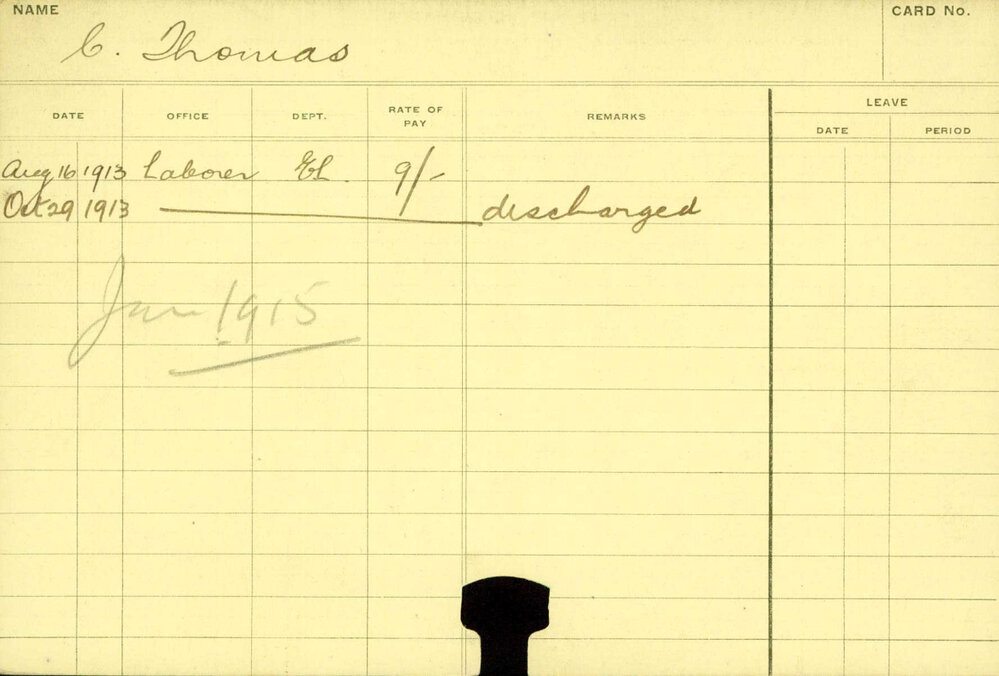 NAME CARD No.
C. Thomas
LEAVE
DATE OFFICE DEPT. RATE OF PAY REMARKS DATE PERIOD
Aug 16 1913 Laborer El. 9/-
Oct 29 1913 discharged
Jan 1915